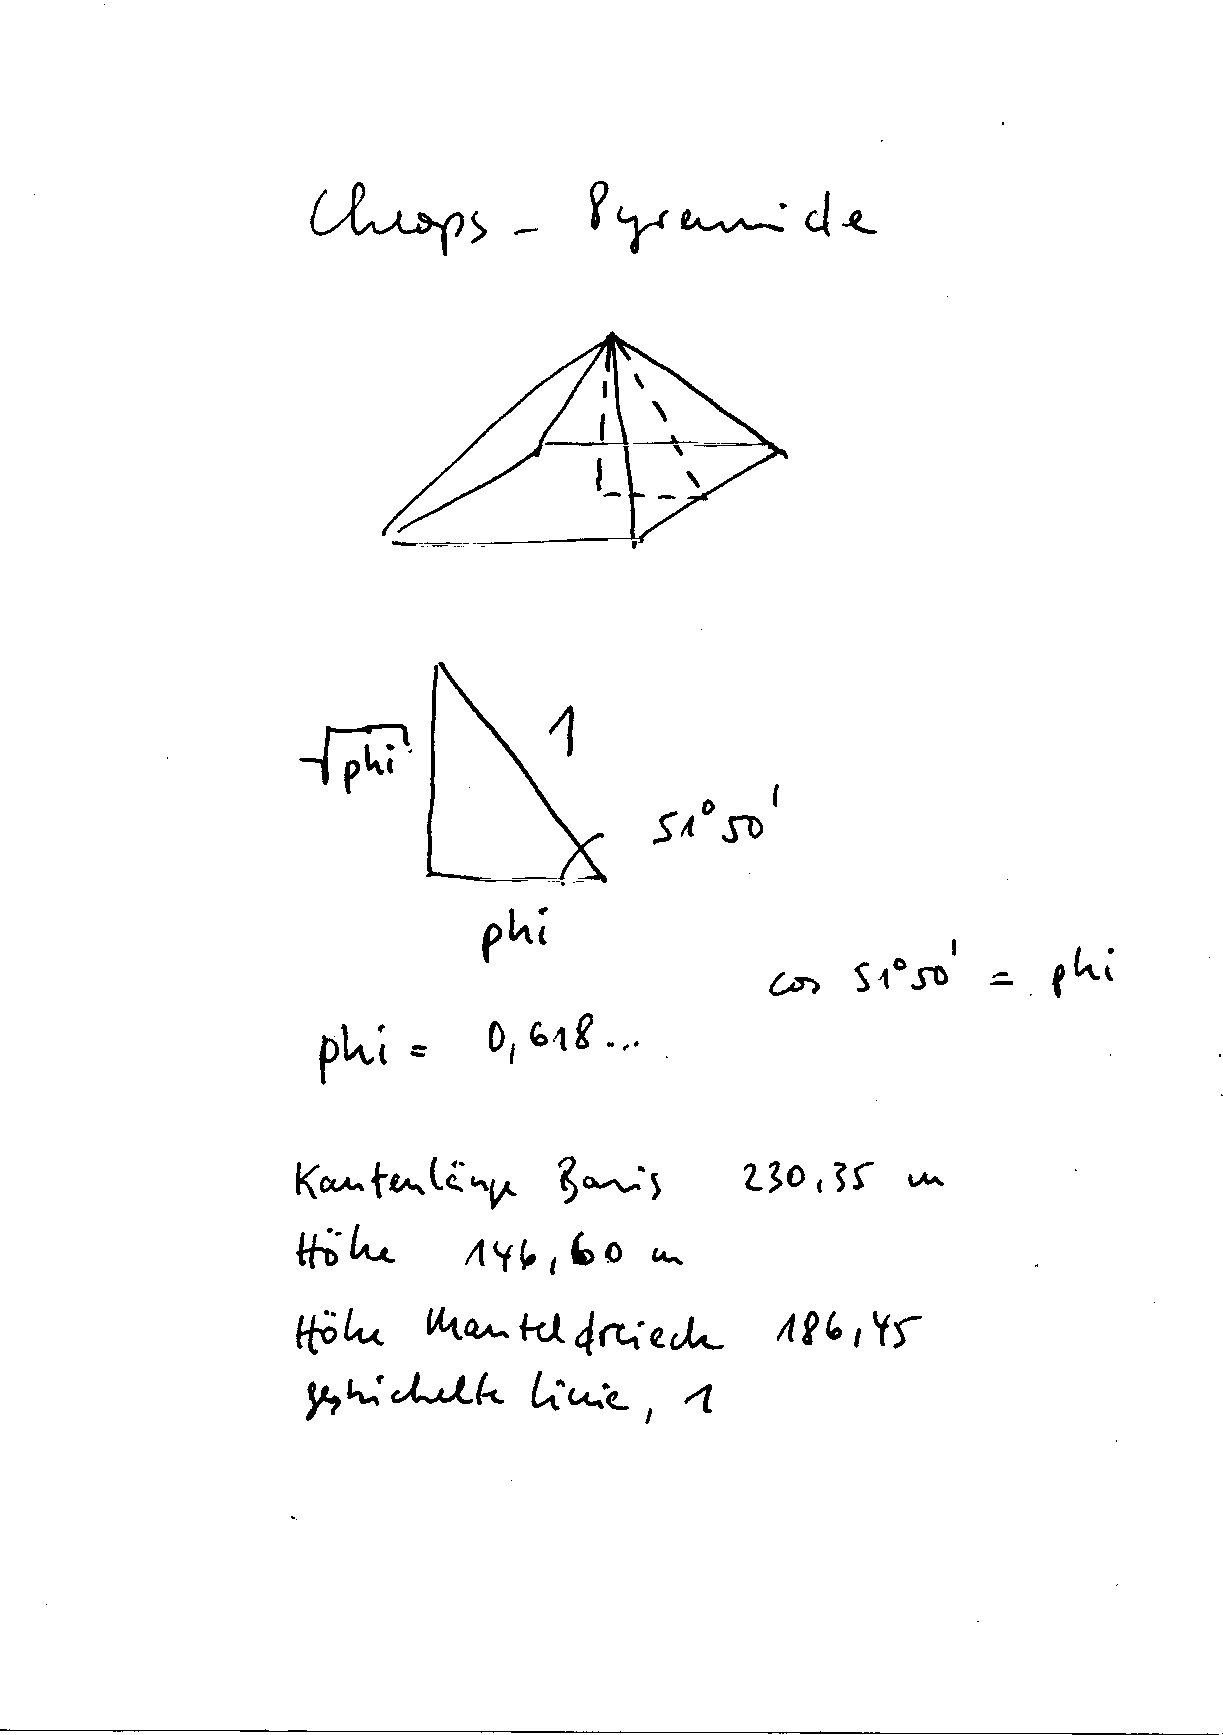 Cheops - Pyramide
√phi
1
51° 50'
phi
cos 51° 50' = phi
phi = 0,618...
Kantenlänge Basis 230,35 m
Höhe 146,60 m
Höhe Manteldreieck 186,45
gestrichelte Linie, 1